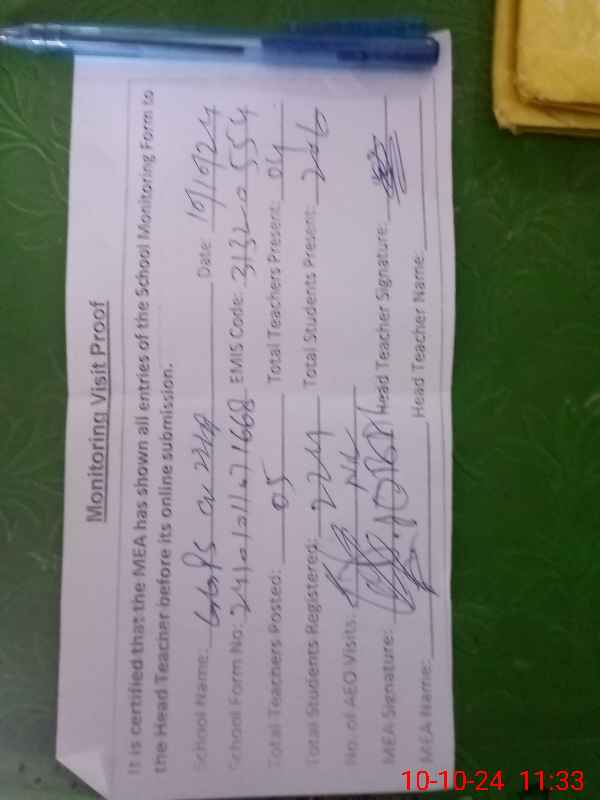 Monitoring Visit Proof
It is certified that the MEA has shown all entries of the School Monitoring Form to
the Head Teacher before its online submission.
School Name: Date: 10/10/24
School Form No: EMIS Code: 31320554
Total Teachers Posted: 05 Total Teachers Present: 04
Total Students Registered: 224 Total Students Present: 206
No. of AEO Visits:
MEA Signature: Head Teacher Signature:
MEA Name: Head Teacher Name:
10-10-24 11:33